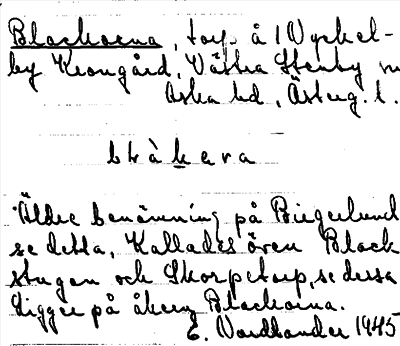 Blackorna, torp å 1 Nyckel-
by Krongård, Västra Stenby sn
Aska hd, Österg. l.
blàkɐra
Äldre benämning på Birgerlund
se detta, Kallades även Black
stugan och Skorpetorp, se dessa
Ligger på åkern Blackorna.
E. Nordlander 1945